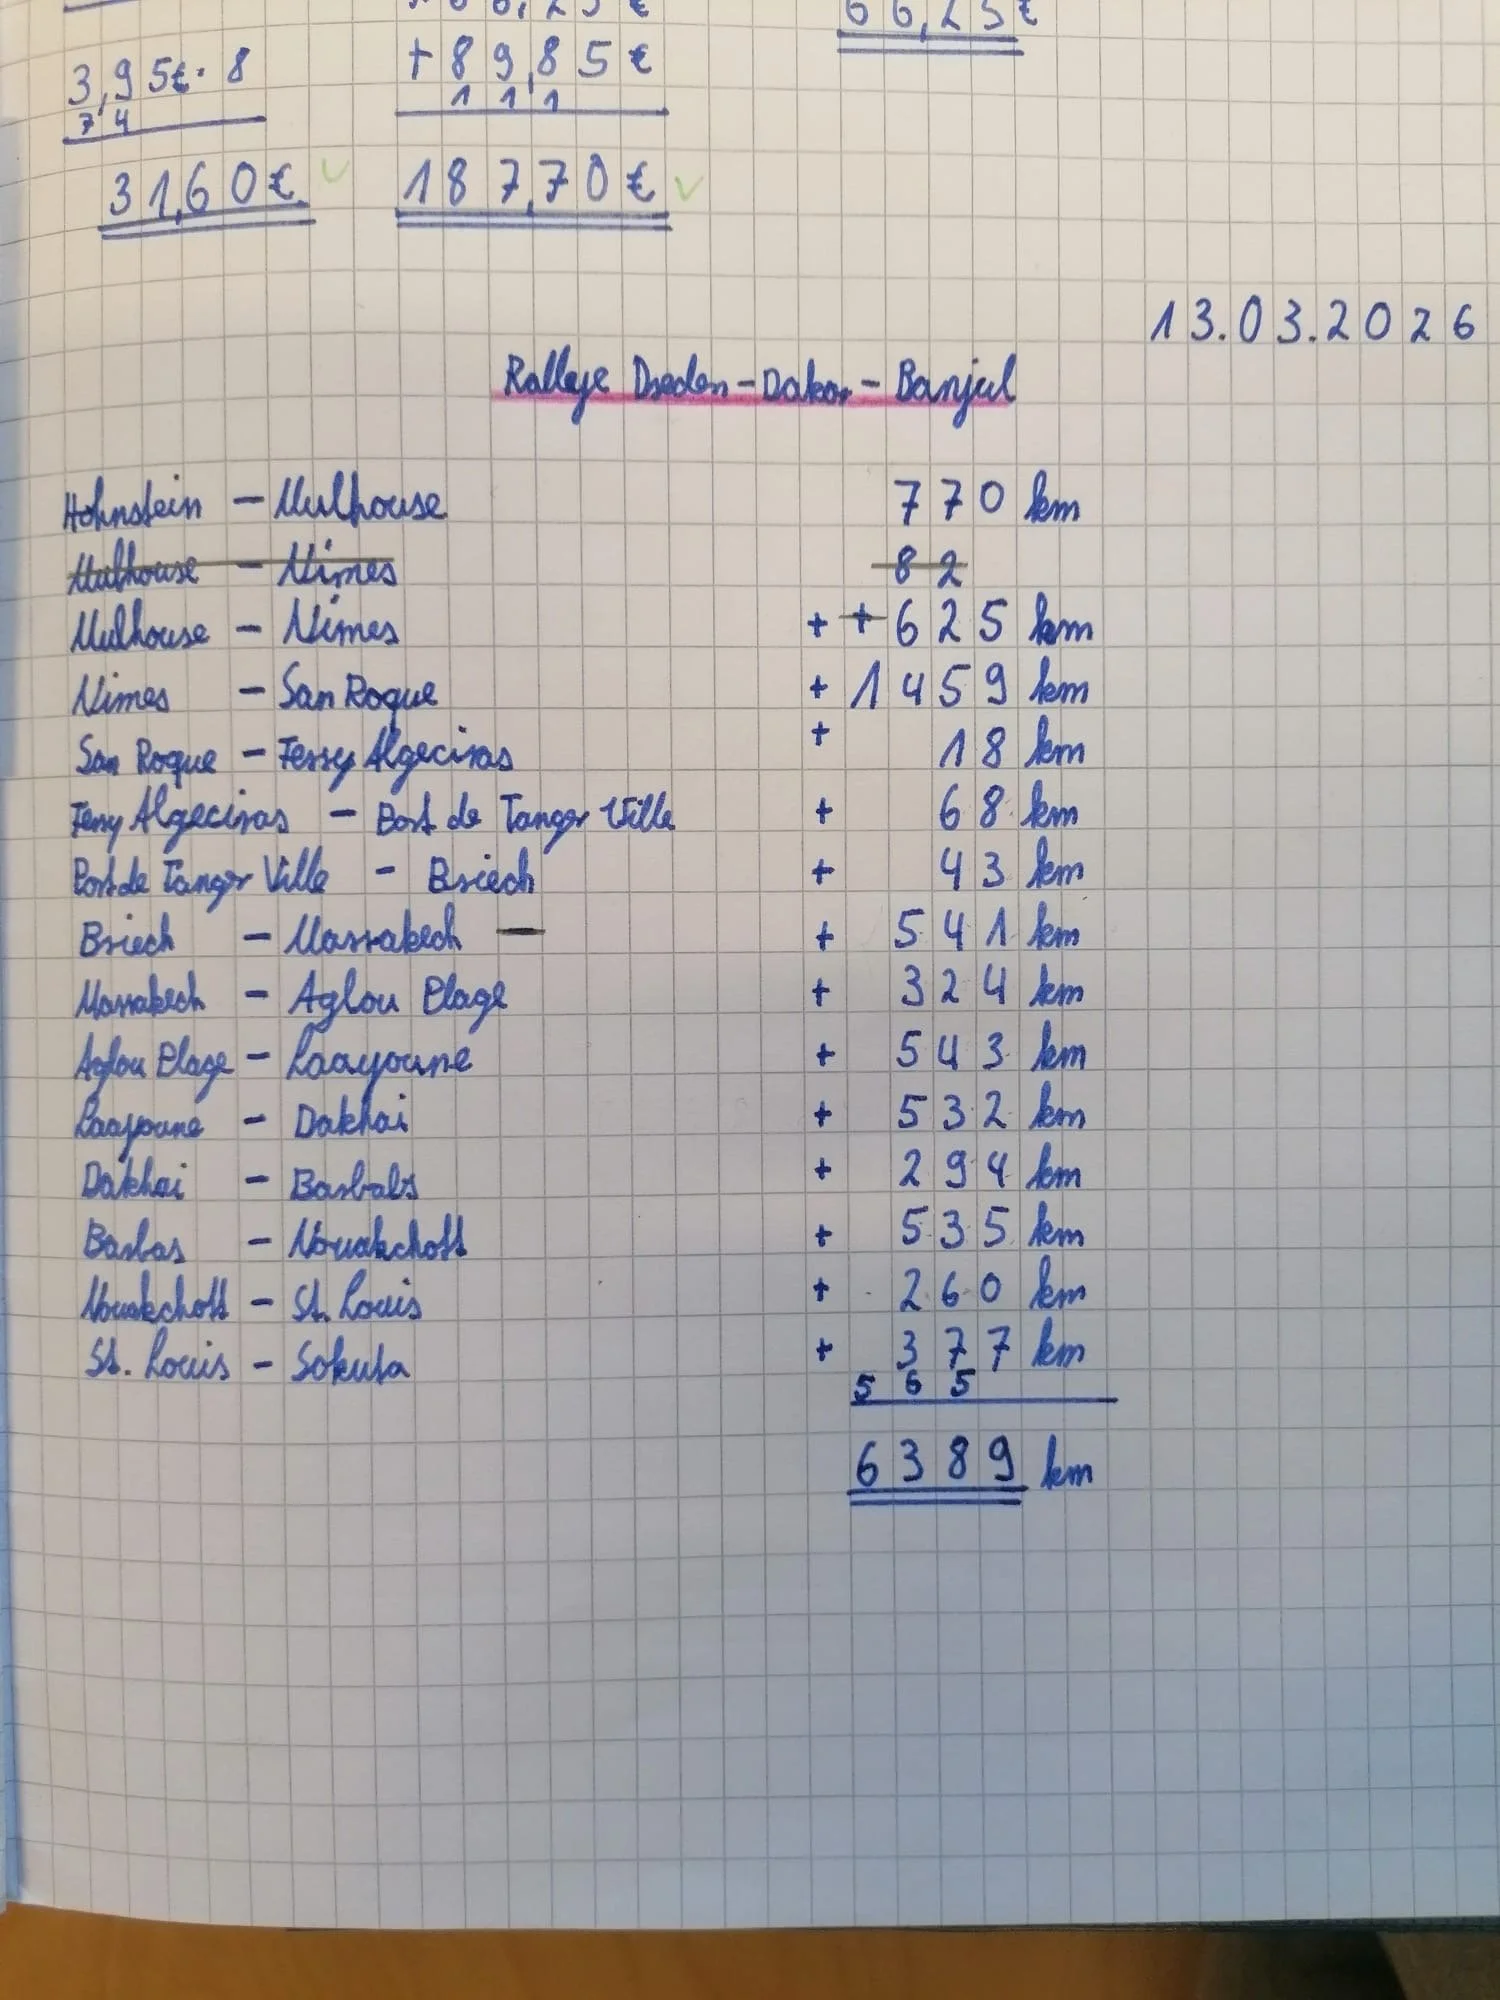 66,25€
3,95€·8
+89,85€
1 1 1
7 4
31,60€ ✓
187,70€ ✓
13.03.2026
Rallye Dresden – Dakar – Banjul
Hohnstein – Mulhouse 770 km
Mulhouse – Nimes 82
Mulhouse – Nimes + + 625 km
Nimes – San Roque + 1459 km
San Roque – Ferry Algeciras + 18 km
Ferry Algeciras – Port de Tanger Ville + 68 km
Port de Tanger Ville – Briech + 43 km
Briech – Marrakech — + 541 km
Marrakech – Aglou Plage + 324 km
Aglou Plage – Laayoune + 543 km
Laayoune – Dakhai + 532 km
Dakhai – + 294 km
Barbas – Nouakchott + 535 km
Nouakchott – St. Louis + 260 km
St. Louis – Sokuta + 377 km
5 6 5
6389 km